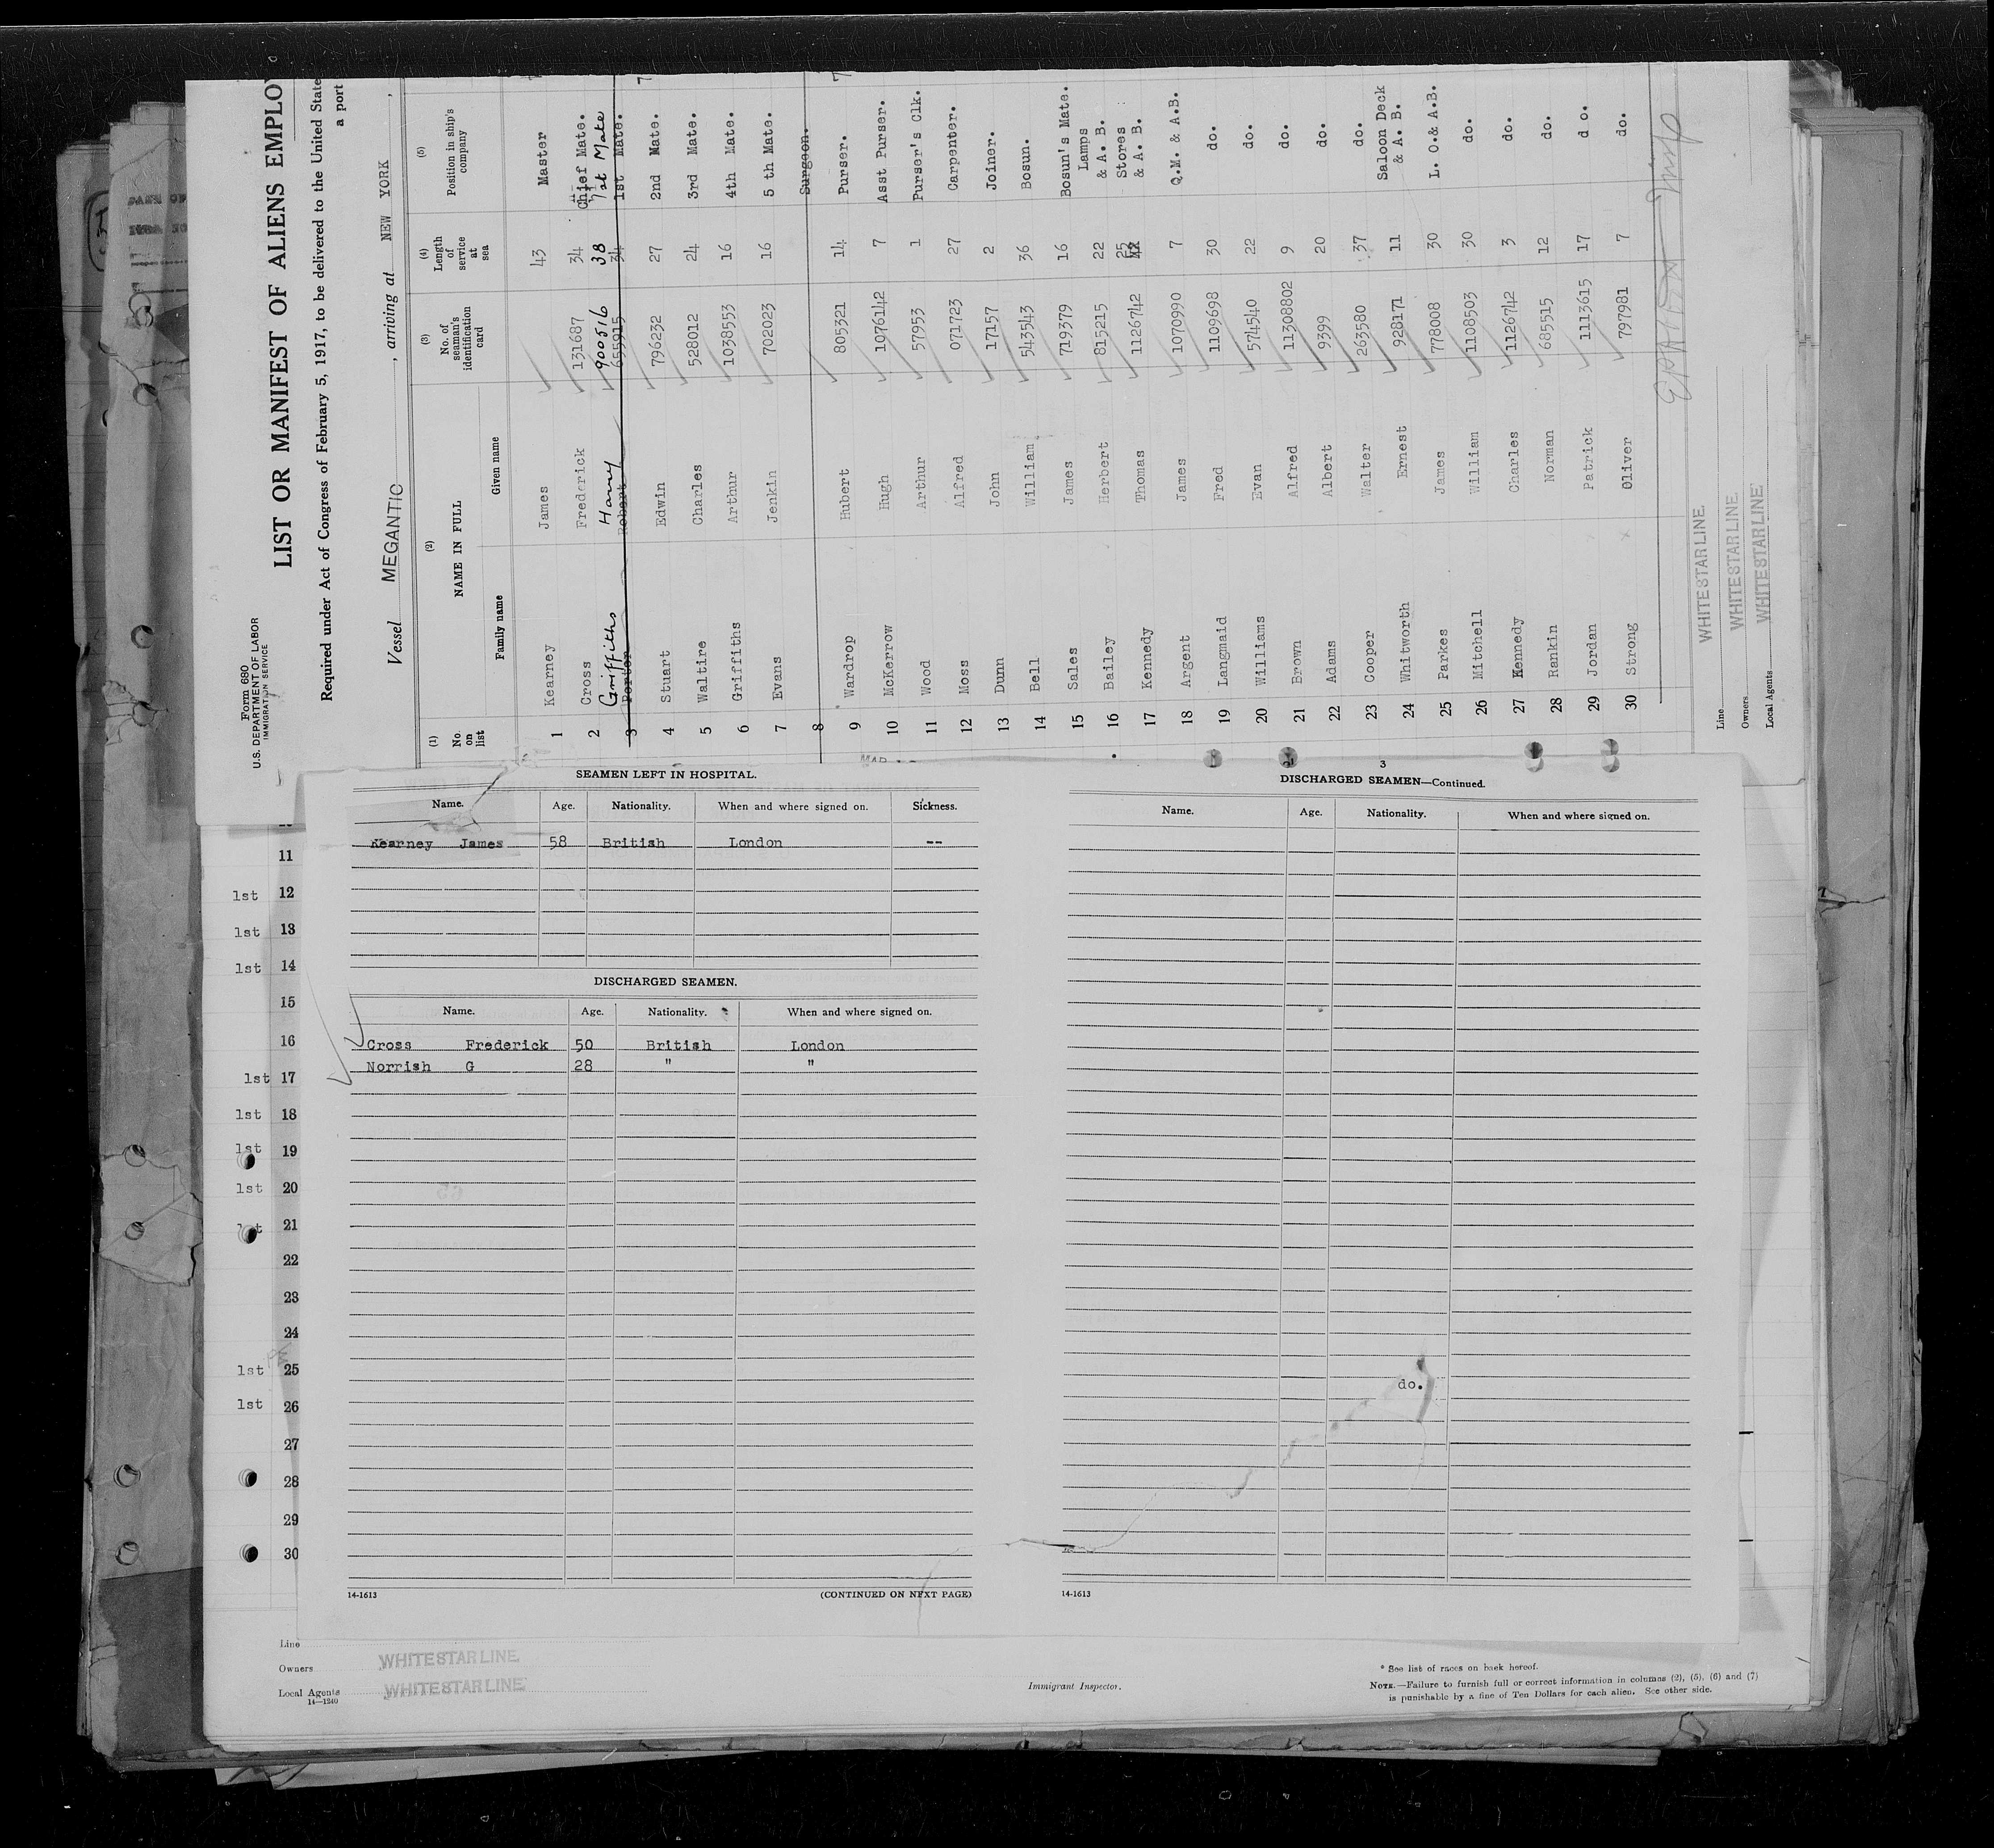 Form 680
U.S. DEPARTMENT OF LABOR
IMMIGRATION SERVICE
LIST OR MANIFEST OF ALIENS EMPLOY
Required under Act of Congress of February 5, 1917, to be delivered to the United State
a port
Vessel MEGANTIC, arriving at NEW YORK,
(1) (2) (3) (4) (5)
No. on list NAME IN FULL No. of seaman's identification card Length of service at sea Position in ship's company
Family name Given name
1 Kearney James 43 Master
2 Cross Frederick 131687 34 Chief Mate.
Griffiths Harry 900516 38 1st Mate
3 Porter Robert 655915 34 1st Mate.
4 Stuart Edwin 796232 27 2nd Mate.
5 Waltire Charles 528012 24 3rd Mate.
6 Griffiths Arthur 1038553 16 4th Mate.
7 Evans Jenkin 702023 16 5 th Mate.
8 Surgeon.
9 Wardrop Hubert 805321 14 Purser.
10 McKerrow Hugh 1076142 7 Asst Purser.
11 Wood Arthur 57953 1 Purser's Clk.
12 Moss Alfred 071723 27 Carpenter.
13 Dunn John 17157 2 Joiner.
14 Bell William 543543 36 Bosun.
15 Sales James 719379 16 Bosun's Mate.
16 Bailey Herbert 815215 22 Lamps & A. B.
17 Kennedy Thomas 1126742 25 Stores & A. B.
18 Argent James 1070990 7 Q.M. & A.B.
19 Langmaid Fred 1109698 30 do.
20 Williams Evan 574540 22 do.
21 Brown Alfred 11308802 9 do.
22 Adams Albert 9399 20 do.
23 Cooper Walter 263580 37 do.
24 Whitworth Ernest 928171 11 Saloon Deck & A. B.
25 Parkes James 778008 30 L. O.& A.B.
26 Mitchell William 1108503 30 do.
27 Kennedy Charles 1126742 3 do.
28 Rankin Norman 685515 12 do.
29 Jordan Patrick 1113615 17 d o.
30 Strong Oliver 797981 7 do.
Line WHITE STAR LINE.
Owners WHITE STAR LINE
Local Agents WHITE STAR LINE
SEAMEN LEFT IN HOSPITAL.
Name. Age. Nationality. When and where signed on. Sickness.
Kearney James 58 British London --
DISCHARGED SEAMEN.
Name. Age. Nationality. When and where signed on.
Cross Frederick 50 British London
Norrish G 28 " "
14-1613 (CONTINUED ON NEXT PAGE)
3
DISCHARGED SEAMEN—Continued.
Name. Age. Nationality. When and where signed on.
do.
14-1613
11
1st 12
1st 13
1st 14
15
16
1st 17
1st 18
1st 19
1st 20
21
22
23
24
1st 25
1st 26
27
28
29
30
Line
Owners WHITE STAR LINE
Local Agents WHITE STAR LINE
14—1240
Immigrant Inspector.
* See list of races on back hereof.
NOTE.—Failure to furnish full or correct information in columns (2), (5), (6) and (7)
is punishable by a fine of Ten Dollars for each alien. See other side.